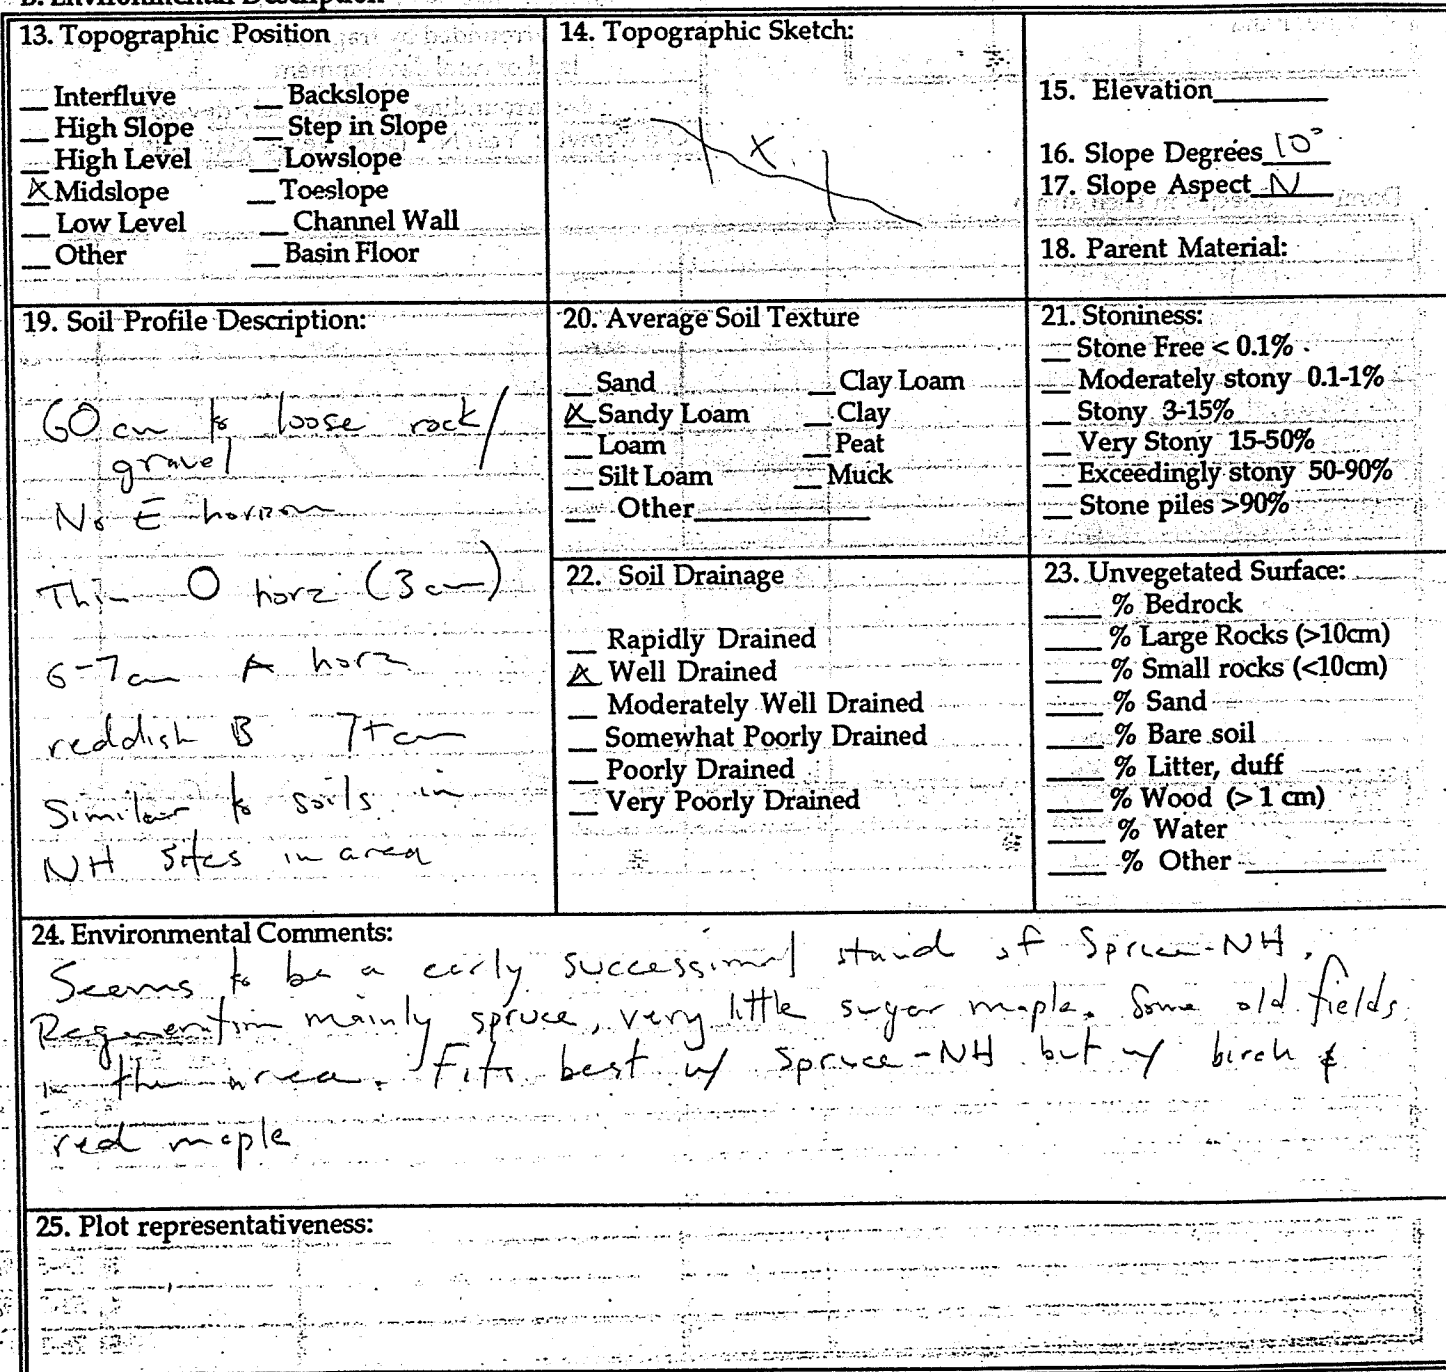 B. Environmental Description
13. Topographic Position
__ Interfluve __ Backslope
__ High Slope __ Step in Slope
__ High Level __ Lowslope
X Midslope __ Toeslope
__ Low Level __ Channel Wall
__ Other __ Basin Floor
14. Topographic Sketch:
X
15. Elevation________
16. Slope Degrees 10°
17. Slope Aspect N
18. Parent Material:
19. Soil Profile Description:
60 cm to loose rock/
gravel
No E horizon
Thin O horz (3 cm)
6-7 cm A horz
reddish B 7+ cm
Similar to soils in
NH sites in area
20. Average Soil Texture
__ Sand __ Clay Loam
X Sandy Loam __ Clay
__ Loam __ Peat
__ Silt Loam __ Muck
__ Other____________
21. Stoniness:
__ Stone Free < 0.1%
__ Moderately stony 0.1-1%
__ Stony 3-15%
__ Very Stony 15-50%
__ Exceedingly stony 50-90%
__ Stone piles >90%
22. Soil Drainage
__ Rapidly Drained
X Well Drained
__ Moderately Well Drained
__ Somewhat Poorly Drained
__ Poorly Drained
__ Very Poorly Drained
23. Unvegetated Surface:
____ % Bedrock
____ % Large Rocks (>10cm)
____ % Small rocks (<10cm)
____ % Sand
____ % Bare soil
____ % Litter, duff
____ % Wood (> 1 cm)
____ % Water
____ % Other __________
24. Environmental Comments:
Seems to be a early successional stand of Spruce-NH.
Regeneration mainly spruce, very little sugar maple. Some old fields
in the area. Fits best w/ Spruce-NH but w/ birch &
red maple
25. Plot representativeness: